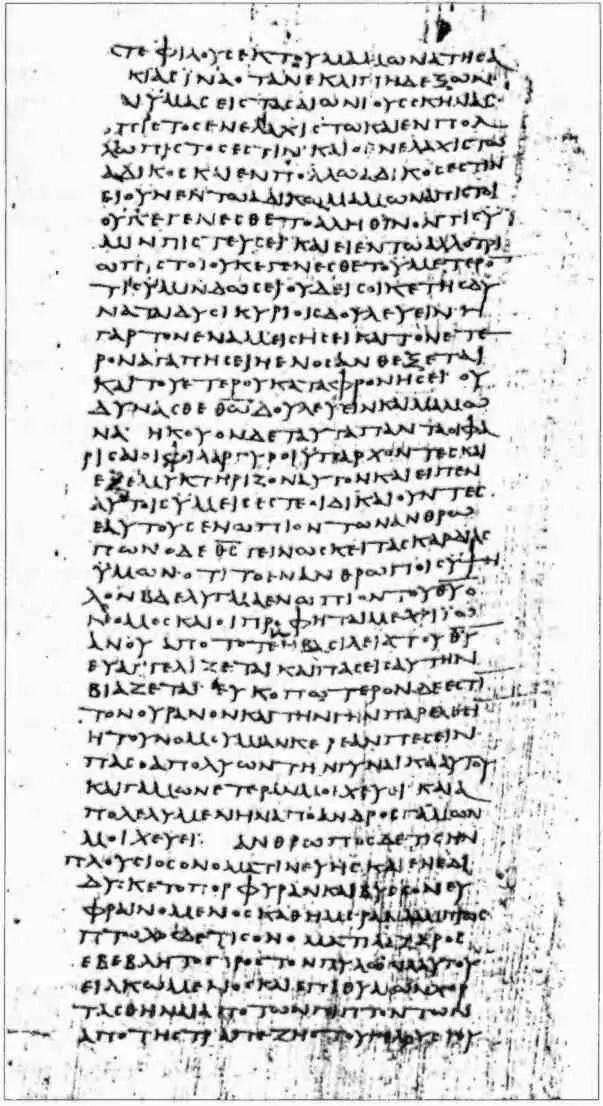 ϹΤΕΦΙΛΟΥϹΕΚΤΟΥΜΑΜΩΝΑΤΗϹΑ
ΚΙΑϹΙΝΑΟΤΑΝΕΚΛΙΠΗΔΕΞΩΝ
ΥΜΑϹΕΙϹΤΑϹΑΙΩΝΙΟΥϹϹΚΗΝΑϹ
ΟΠΙϹΤΟϹΕΝΕΛΑΧΙϹΤΩΚΑΙΕΝΠΟΛ
ΛΩΠΙϹΤΟϹΕϹΤΙΝ·ΚΑΙΟΕΝΕΛΑΧΙϹΤΩ
ΑΔΙΚΟϹΚΑΙΕΝΠΟΛΛΩΑΔΙΚΟϹΕϹΤΙΝ
ΕΙΟΥΝΕΝΤΩΑΔΙΚΩΜΑΜΩΝΑΠΙϹΤΟΙ
ΟΥΚΕΓΕΝΕϹΘΕΤΟΑΛΗΘΙΝΟΝΤΙϹΥ
ΜΙΝΠΙϹΤΕΥϹΕΙ·ΚΑΙΕΙΕΝΤΩΑΛΛΟΤΡΙ
ΩΠΙϹΤΟΙΟΥΚΕΓΕΝΕϹΘΕΤΟΥΜΕΤΕΡΟ
ΤΙϹΥΜΙΝΔΩϹΕΙΟΥΔΕΙϹΟΙΚΕΤΗϹΔΥ
ΝΑΤΑΙΔΥϹΙΚΥΡΙΟΙϹΔΟΥΛΕΥΕΙΝΗ
ΓΑΡΤΟΝΕΝΑΜΕΙϹΗϹΕΙΚΑΙΤΟΝΕΤΕ
ΡΟΝΑΓΑΠΗϹΕΙΗΕΝΟϹΑΝΘΕΞΕΤΑΙ
ΚΑΙΤΟΥΕΤΕΡΟΥΚΑΤΑϹΦΡΟΝΗϹΕΙ·ΟΥ
ΔΥΝΑϹΘΕΘ̅Ω̅ΔΟΥΛΕΥΕΙΝΚΑΙΜΑΜΩ
ΝΑ·ΗΚΟΥΟΝΔΕΤΑΥΤΑΠΑΝΤΑΟΙΦΑ
ΡΙϹΑΙΟΙΦΙΛΑΡΓΥΡΟΙΥΠΑΡΧΟΝΤΕϹΚΑΙ
ΕΞΕΜΥΚΤΗΡΙΖΟΝΑΥΤΟΝΚΑΙΕΙΠΕΝ
ΑΥΤΟΙϹΥΜΕΙϹΕϹΤΕΟΙΔΙΚΑΙΟΥΝΤΕϹ
ΕΑΥΤΟΥϹΕΝΩΠΙΟΝΤΩΝΑΝΘΡΩ
ΠΩΝΟΔΕΘ̅Ϲ̅ΓΕΙΝΩϹΚΕΙΤΑϹΚΑΡΔΙΑϹ
ΫΜΩΝ·ΟΤΙΤΟΕΝΑΝΘΡΩΠΟΙϹΥΨΗ
ΛΟΝΒΔΕΛΥΓΜΑΕΝΩΠΙΟΝΤΟΥΘ̅Υ̅Ο
ΝΟΜΟϹΚΑΙΟΙΠΡΟΦΗΤΑΙΜΕΧΡΙΪΩ
ΑΝΟΥΑΠΟΤΟΤΕΗΒΑϹΙΛΕΙΑΤΟΥΘ̅Υ̅
ΕΥΑΓΓΕΛΙΖΕΤΑΙΚΑΙΠΑϹΕΙϹΑΥΤΗΝ
ΒΙΑΖΕΤΑΙ·ΕΥΚΟΠΩΤΕΡΟΝΔΕΕϹΤΙ
ΤΟΝΟΥΡΑΝΟΝΚΑΙΤΗΝΓΗΝΠΑΡΕΛΘΕΙ
ΗΤΟΥΝΟΜΟΥΜΙΑΝΚΕΡΕΑΝΠΕϹΕΙΝ
ΠΑϹΟΑΠΟΛΥΩΝΤΗΝΓΥΝΑΙΚΑΑΥΤΟΥ
ΚΑΙΓΑΜΩΝΕΤΕΡΑΝΜΟΙΧΕΥΕΙΚΑΙΑ
ΠΟΛΕΛΥΜΕΝΗΝΑΠΟΑΝΔΡΟϹΓΑΜΩΝ
ΜΟΙΧΕΥΕΙ·ΑΝΘΡΩΠΟϹΔΕΤΙϹΗΝ
ΠΛΟΥϹΙΟϹΟΝΟΜΑΤΙΝΕΥΗϹΚΑΙΕΝΕΔΙ
ΔΥϹΚΕΤΟΠΟΡΦΥΡΑΝΚΑΙΒΥϹϹΟΝΕΥ
ΦΡΑΙΝΟΜΕΝΟϹΚΑΘΗΜΕΡΑΝΛΑΜΠΡΩϹ
ΠΤΩΧΟϹΔΕΤΙϹΟΝΟΜΑΤΙΛΑΖΑΡΟϹ
ΕΒΕΒΛΗΤΟΠΡΟϹΤΟΝΠΥΛΩΝΑΑΥΤΟΥ
ΕΙΛΚΩΜΕΝΟϹΚΑΙΕΠΙΘΥΜΩΝΧΟΡ
ΤΑϹΘΗΝΑΙΑΠΟΤΩΝΠΙΠΤΟΝΤΩΝ
ΑΠΟΤΗϹΤΡΑΠΕΖΗϹΤΟΥΠΛΟΥϹΙΟΥ